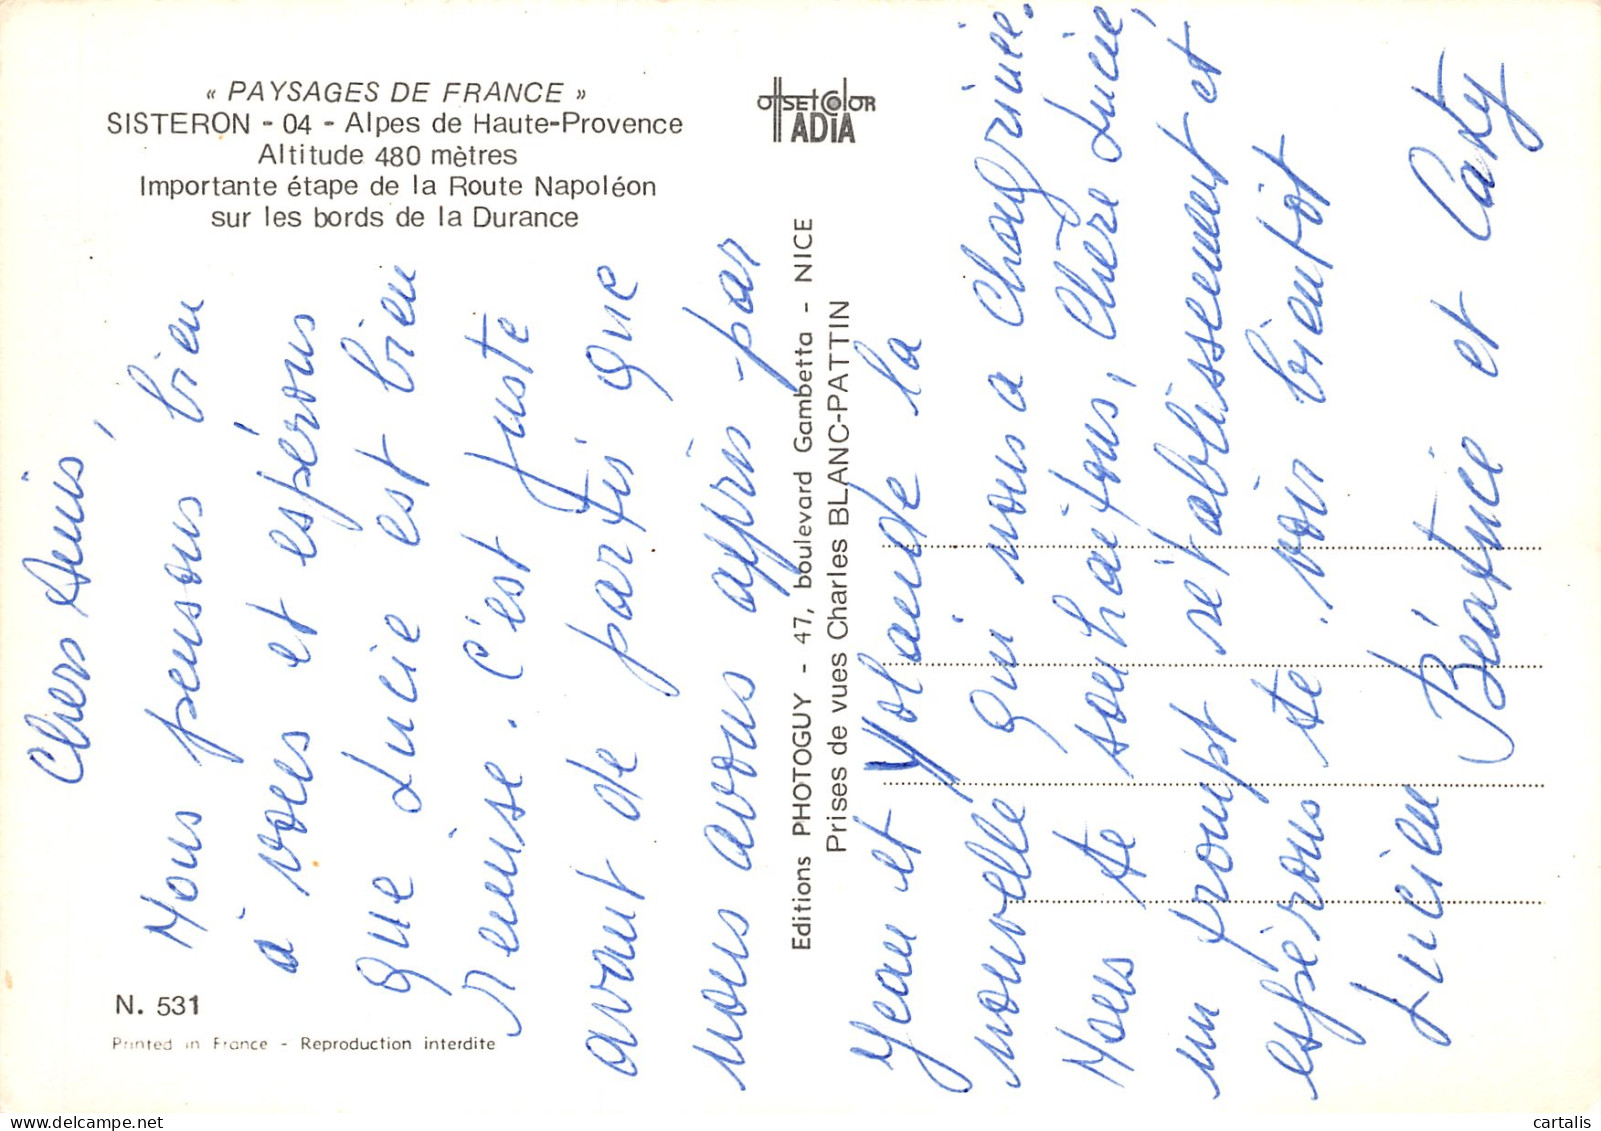 « PAYSAGES DE FRANCE »
SISTERON - 04 - Alpes de Haute-Provence
Altitude 480 mètres
Importante étape de la Route Napoléon
sur les bords de la Durance
OffSETCOlOR
ADIA
Chers Amis,
Nous pensons bien
à vous et espérons
que Lucie est bien
remise. C'est juste
avant de partir que
nous avons appris par
Editions PHOTOGUY - 47, boulevard Gambetta - NICE
Prises de vues Charles BLANC-PATTIN
Jean et Yolande la
nouvelle qui nous a chagrinée.
Nous te souhaitons, Chère Lucie,
un prompt rétablissement et
espérons te voir bientôt
Lucien Béatrice et Caty
N. 531
Printed in France - Reproduction interdite
cartalis
delcampe.net